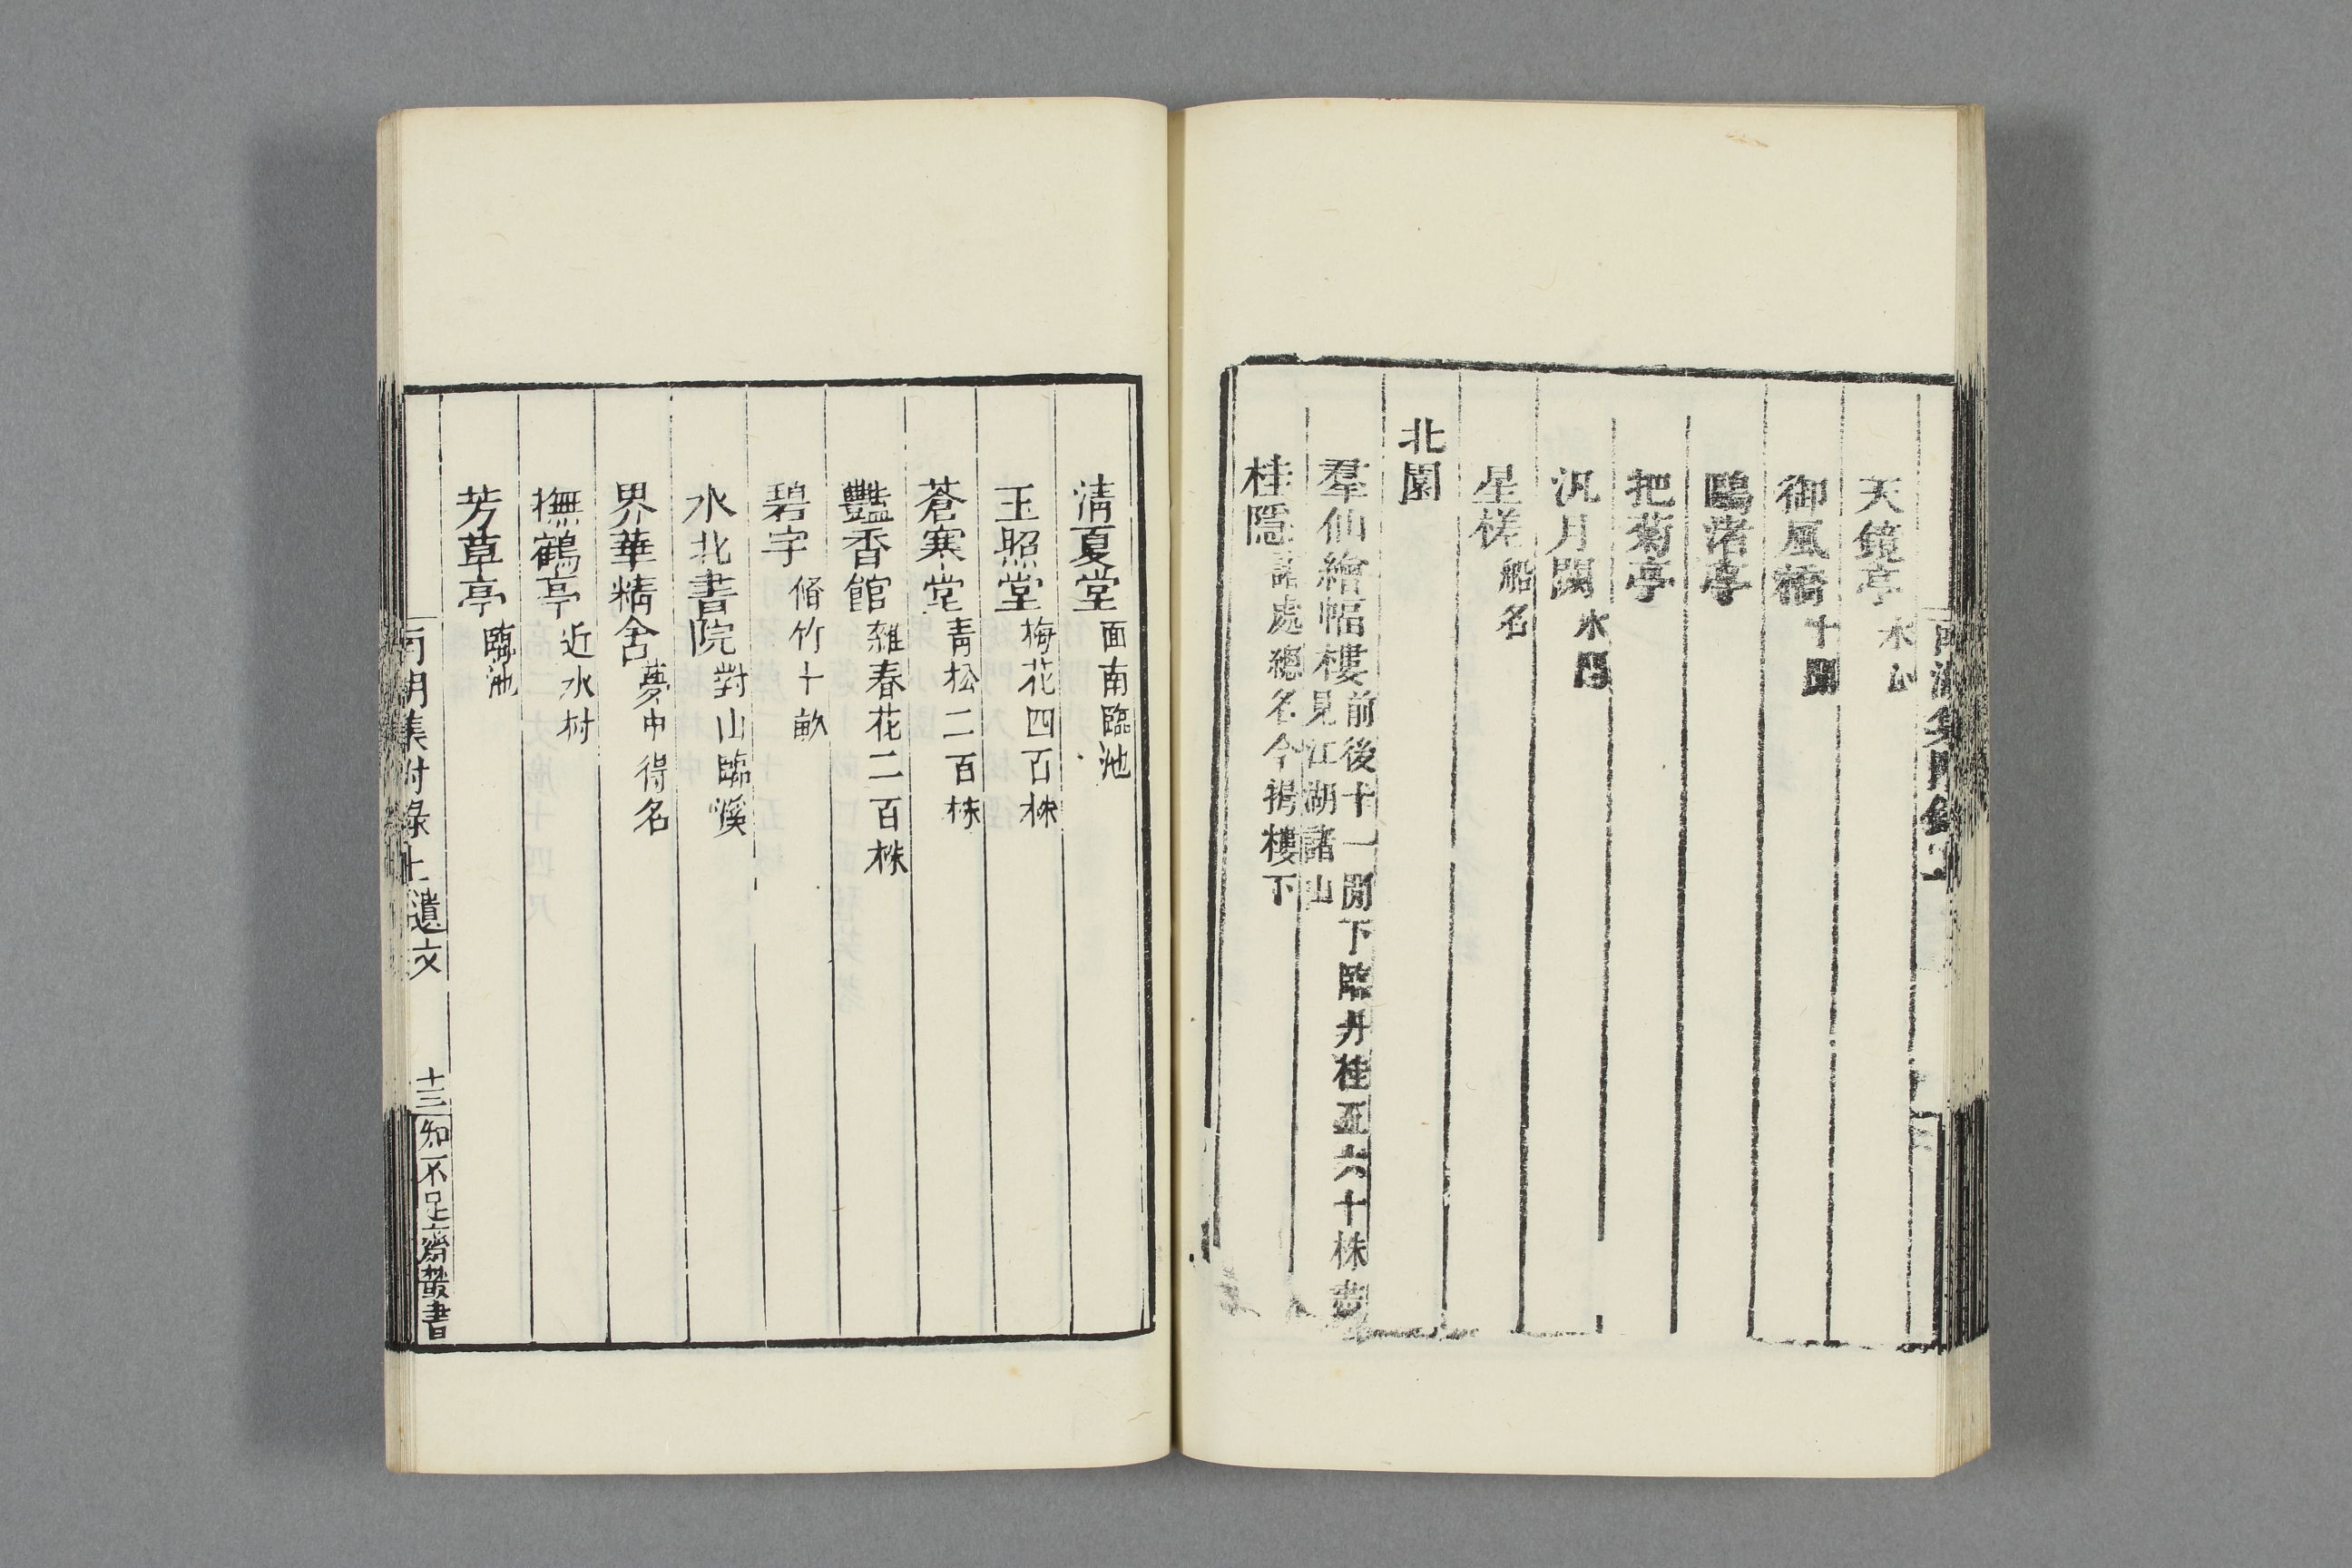 天鏡亭水心
御風橋十間
鷗渚亭
把菊亭
汎月闕水門
星槎船名
北園
羣仙繪幅樓前後十一間下臨丹桂五六十株盡
見江湖諸山
桂隱諸處總名今揭樓下
清夏堂面南臨池
玉照堂梅花四百株
蒼寒堂青松二百株
豔香館雜春花二百株
碧宇脩竹十畝
水北書院對山臨溪
界華精舍夢中得名
撫鶴亭近水村
芳草亭臨池
南湖集附錄上遺文 十三 知不足齋叢書